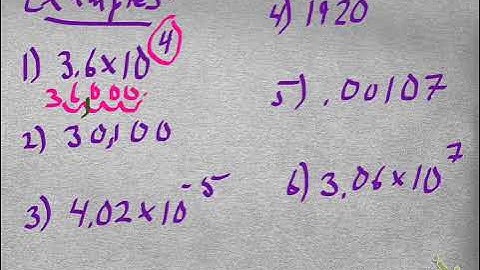 Examples
1) 3.6×10⁴
36,000
2) 30,100
3) 4.02×10⁻⁵
4) 1920
5) .00107
6) 3.06×10⁷